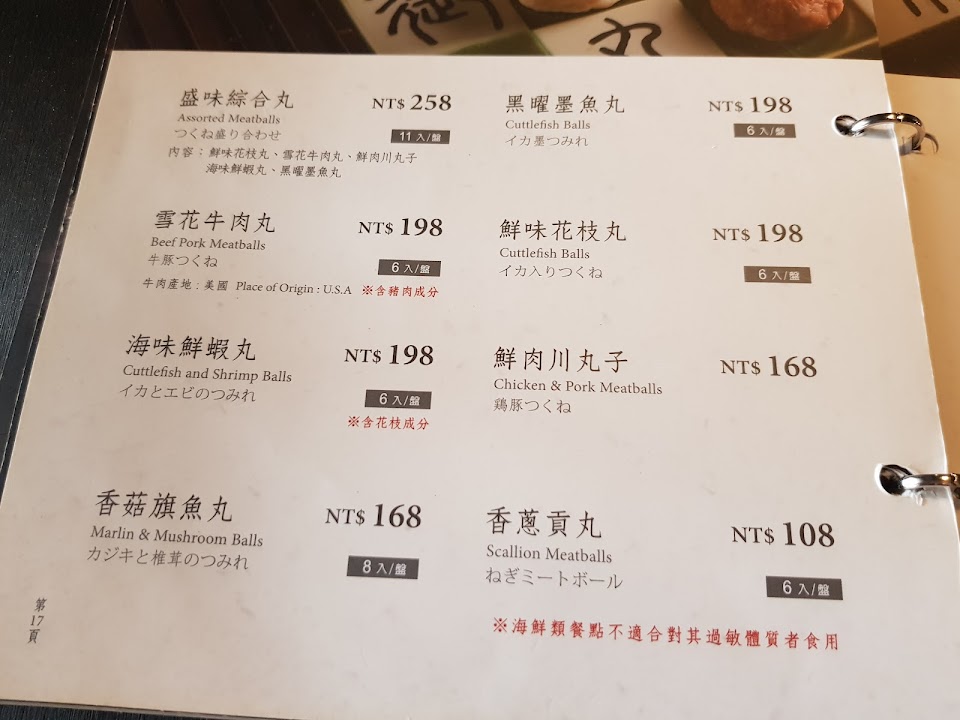 盛味綜合丸 NT$ 258
Assorted Meatballs
つくね盛り合わせ 11 入/盤
內容：鮮味花枝丸、雪花牛肉丸、鮮肉川丸子
海味鮮蝦丸、黑曜墨魚丸
雪花牛肉丸 NT$ 198
Beef Pork Meatballs
牛豚つくね 6 入/盤
牛肉產地：美國 Place of Origin : U.S.A ※含豬肉成分
海味鮮蝦丸 NT$ 198
Cuttlefish and Shrimp Balls
イカとエビのつみれ 6 入/盤
※含花枝成分
香菇旗魚丸 NT$ 168
Marlin & Mushroom Balls
カジキと椎茸のつみれ 8 入/盤
黑曜墨魚丸 NT$ 198
Cuttlefish Balls
イカ墨つみれ 6 入/盤
鮮味花枝丸 NT$ 198
Cuttlefish Balls
イカ入りつくね 6 入/盤
鮮肉川丸子 NT$ 168
Chicken & Pork Meatballs
鶏豚つくね
香蔥貢丸 NT$ 108
Scallion Meatballs
ねぎミートボール 6 入/盤
※海鮮類餐點不適合對其過敏體質者食用
第17頁
丸